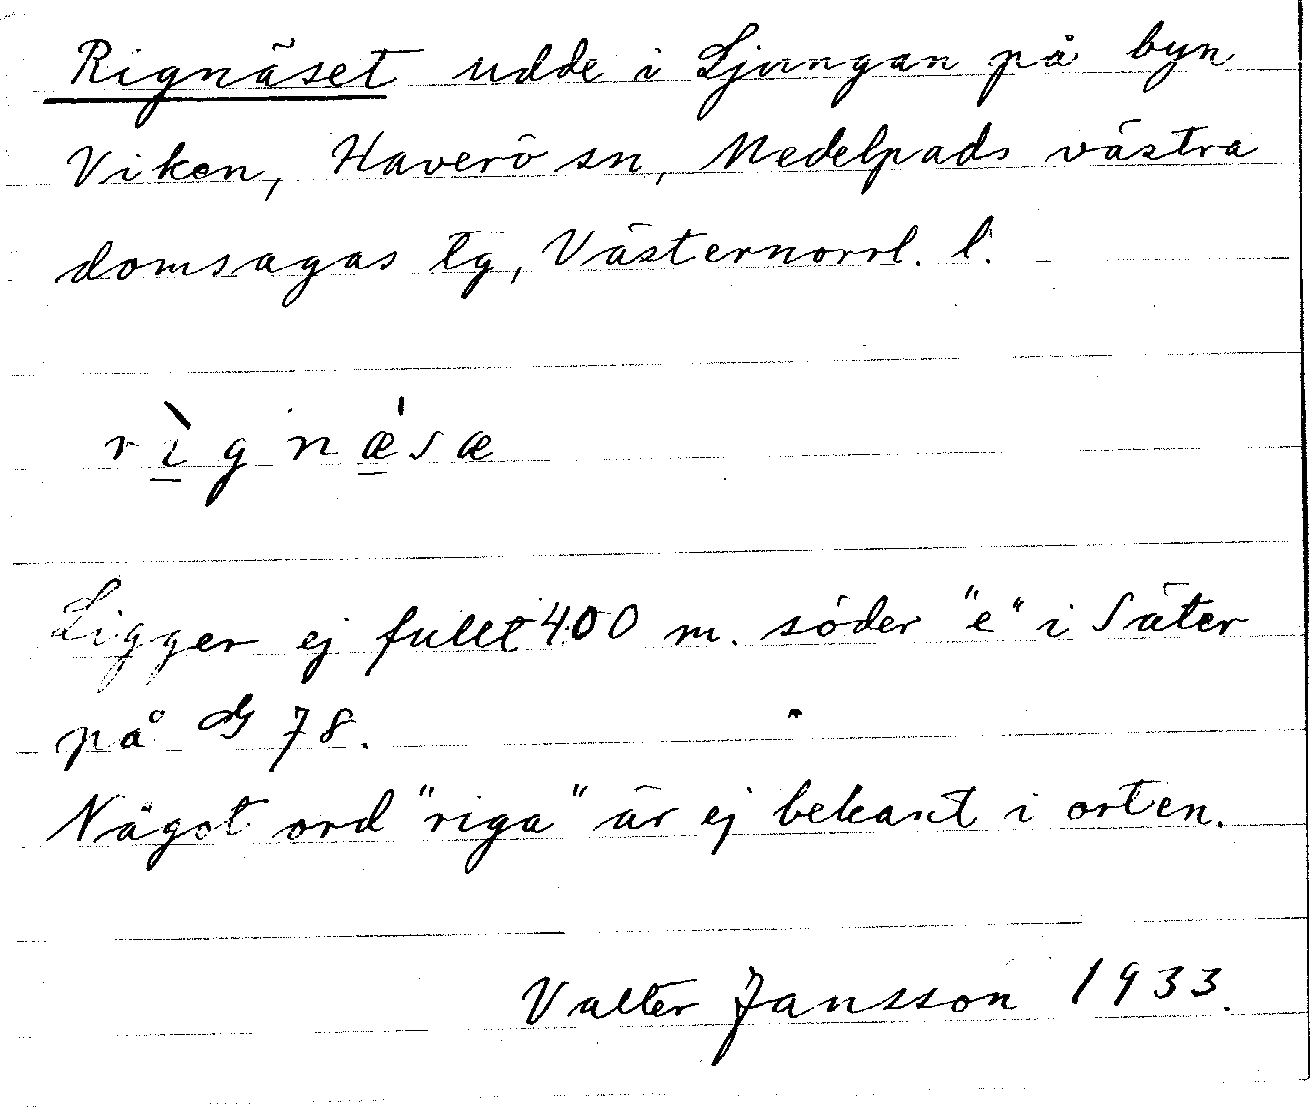 Rignäset udde i Ljungan på byn
Viken, Haverö sn, Medelpads västra
domsagas tg, Västernorrl. l.
rìgnæ̍sæ
Ligger ej fullt 400 m. söder "e" i Säter
på 78.
Något ord "riga" är ej bekant i orten.
Valter Jansson 1933.